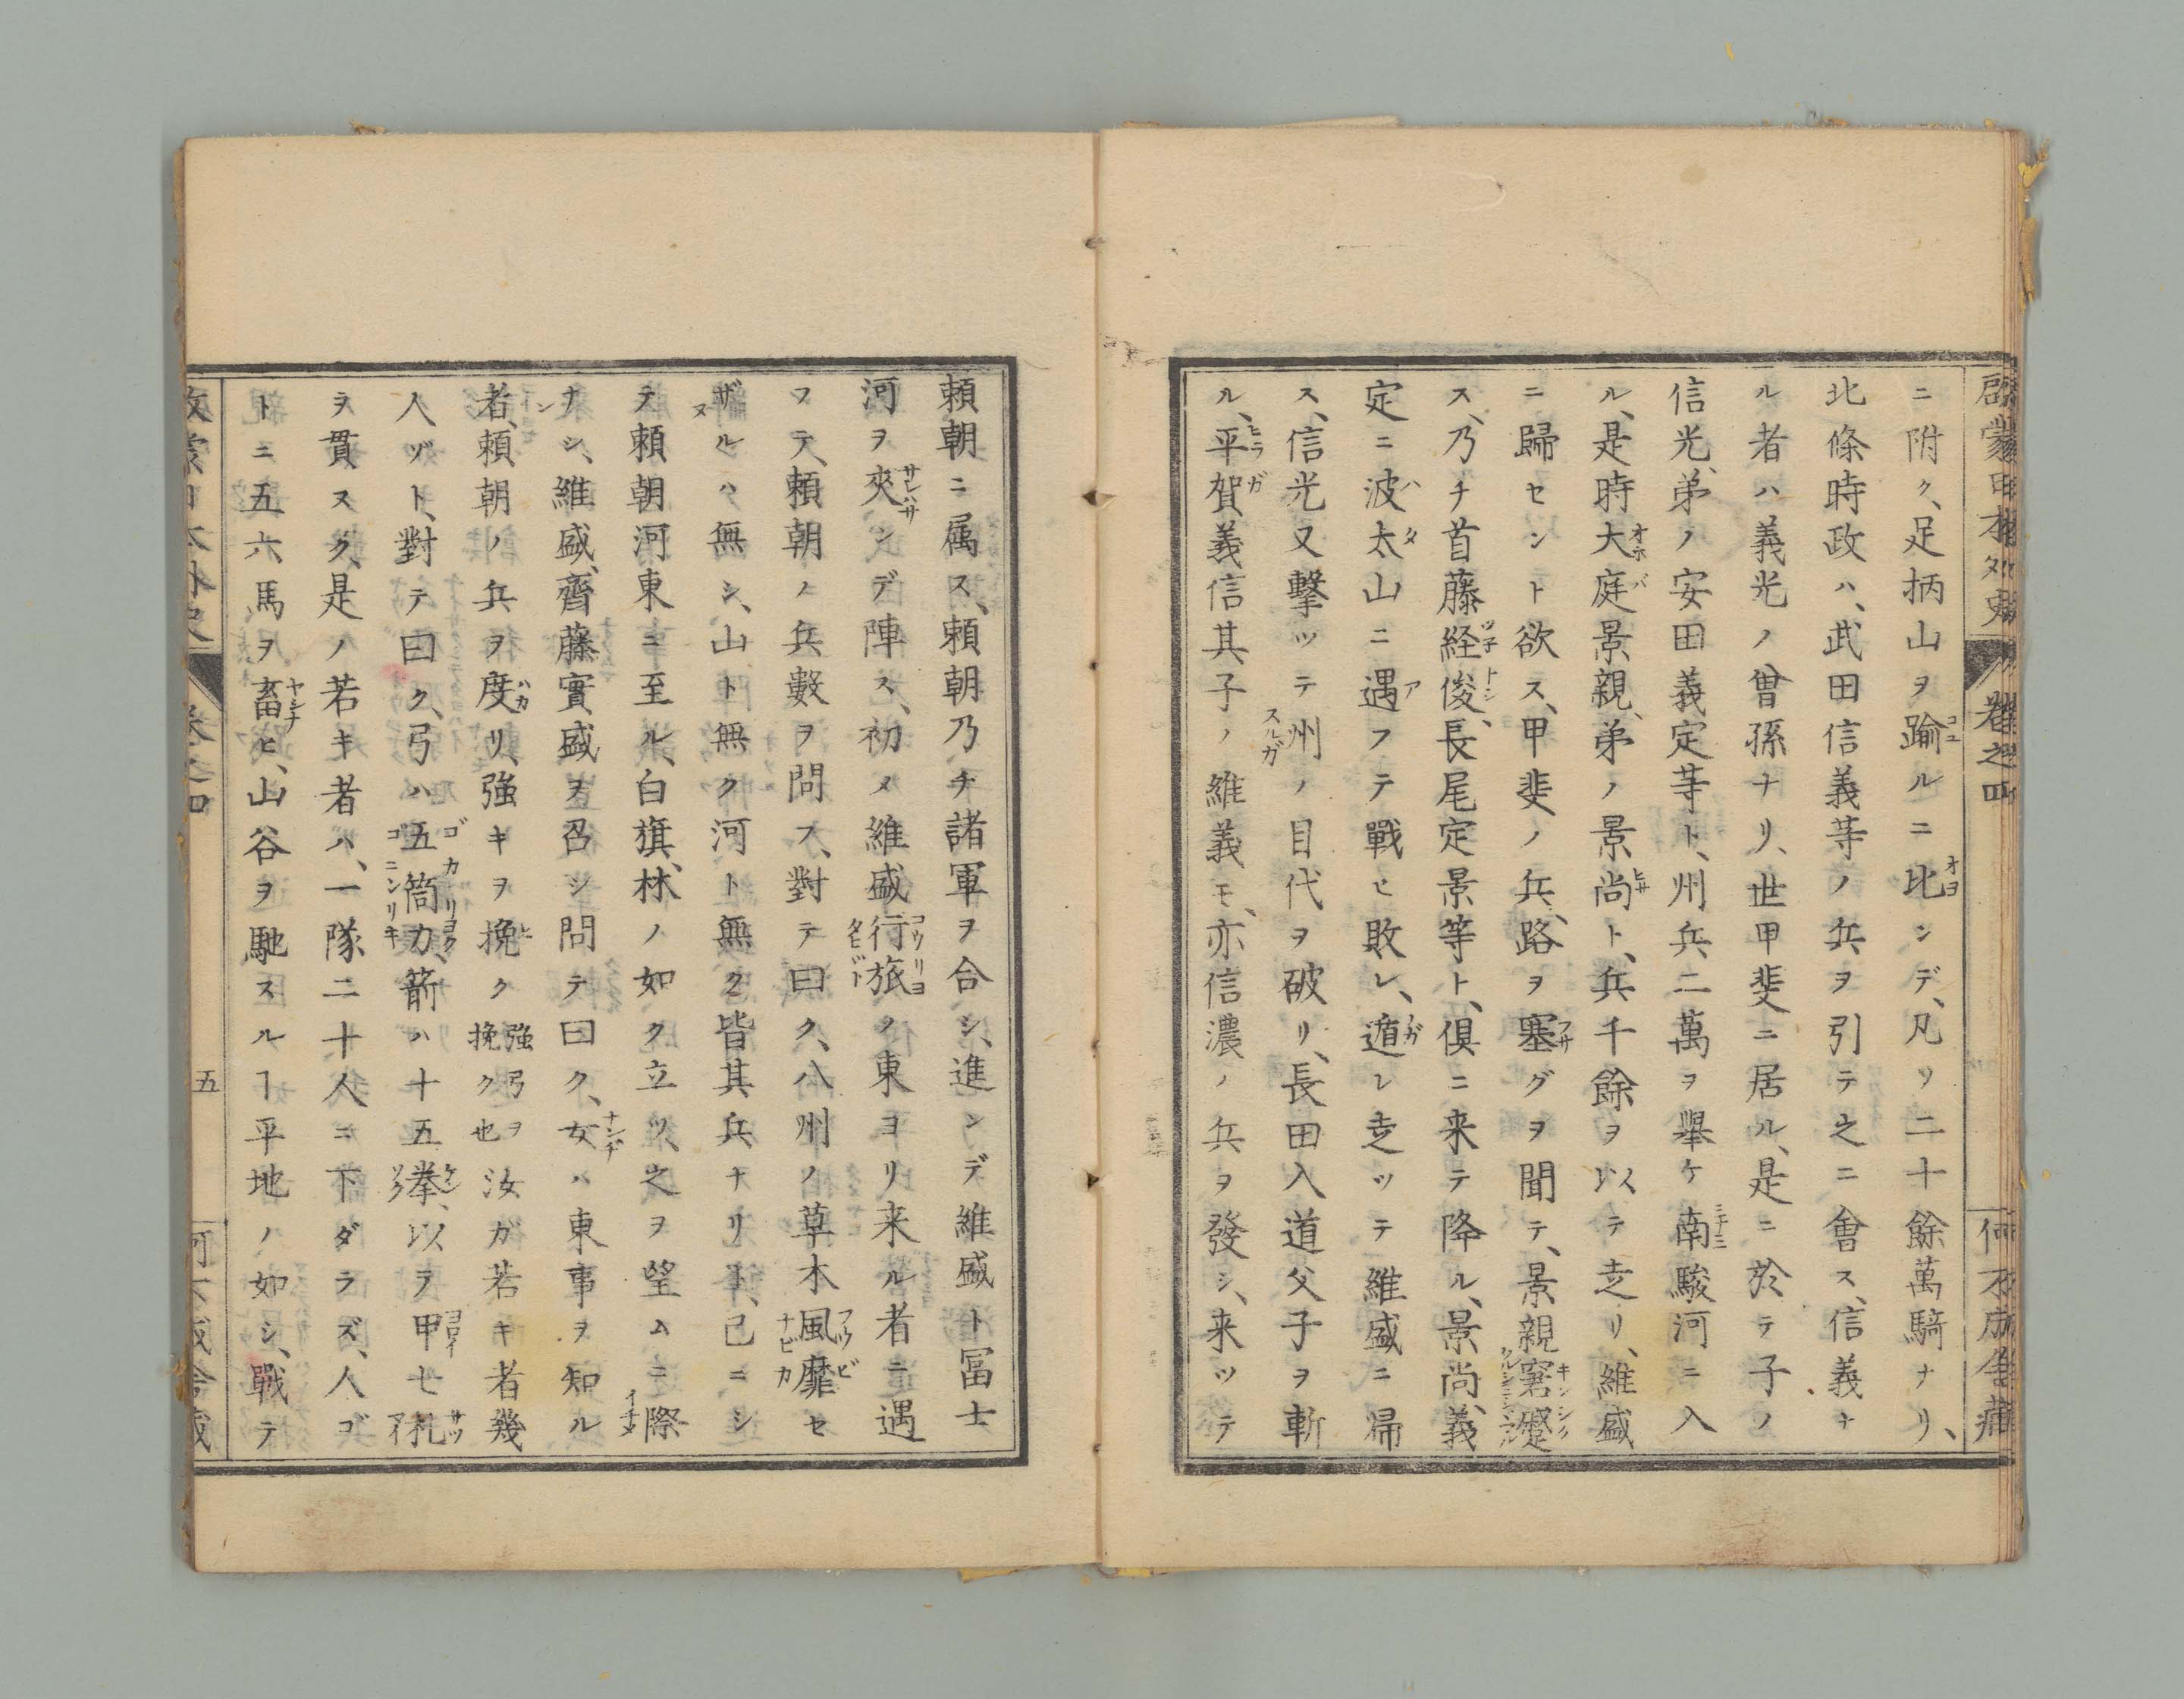 ニ附ク、足柄山ヲ踰ルニ比ンデ、凡ソ二十餘萬騎ナリ、
北條時政ハ、武田信義等ノ兵ヲ引テ之ニ會ス、信義ナ
ル者ハ義光ノ曾孫ナリ、世甲斐ニ居ル、是ニ於テ子ノ
信光、弟ノ安田義定等ト、州兵二萬ヲ擧ケ南駿河ニ入
ル、是時大庭景親、弟ノ景尚ト、兵千餘ヲ以テ走リ、維盛
ニ歸センㇳ欲ス、甲斐ノ兵、路ヲ塞グヲ聞テ、景親窘蹙
ス、乃チ首藤経俊、長尾定景等ト、倶ニ来テ降ル、景尚、義
定ニ波太山ニ遇フテ戰ヒ敗レ、遁レ走ツテ維盛ニ帰
ス、信光又擊ツテ州ノ目代ヲ破リ、長田入道父子ヲ斬
ル、平賀義信其子ノ維義モ、亦信濃ノ兵ヲ發シ、来ツテ
頼朝ニ属ス、頼朝乃チ諸軍ヲ合シ、進ンデ維盛ト冨士
河ヲ夾ンデ陣ス、初メ維盛行旅ノ東ヨリ来ル者ニ遇
フテ、頼朝ノ兵數ヲ問フ、對テ曰ク、八州ノ草木風靡セ
ザルハ無シ、山ト無ク河ト無ク皆其兵ナリト、已ニシ
テ頼朝河東ニ至ル、白旗、林ノ如ク立ツ、之ヲ望ムニ際
ナシ、維盛、齊藤實盛ヲ召シ問テ曰ク、女ハ東事ヲ知ル
者、頼朝ノ兵ヲ度リ、強キヲ挽ク強弓ヲ挽ク也汝ガ若キ者幾
人ヅト、對テ曰ク、弓ハ五箇力、箭ハ十五拳、以テ甲七札
ヲ貫スク、是ノ若キ者ハ、一隊二十人ニ下ダラズ、人ゴ
トニ五六馬ヲ畜ヒ、山谷ヲ馳スルヿ平地ノ如シ、戰テ
卷之四
五